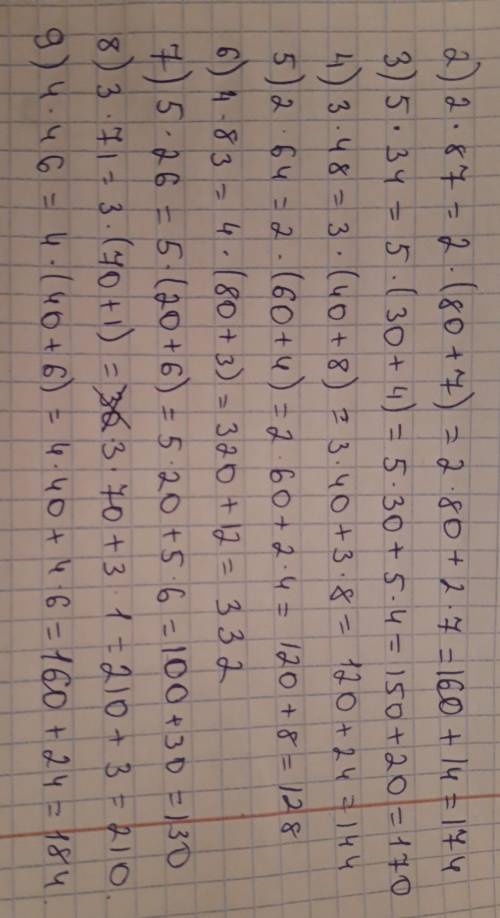 2) 2·87 = 2·(80+7) = 2·80 + 2·7 = 160 + 14 = 174
3) 5·34 = 5·(30+4) = 5·30 + 5·4 = 150 + 20 = 170
4) 3·48 = 3·(40+8) = 3·40 + 3·8 = 120 + 24 = 144
5) 2·64 = 2·(60+4) = 2·60 + 2·4 = 120 + 8 = 128
6) 4·83 = 4·(80+3) = 320 + 12 = 332
7) 5·26 = 5·(20+6) = 5·20 + 5·6 = 100 + 30 = 130
8) 3·71 = 3·(70+1) = 3·70 + 3·1 = 210 + 3 = 210
9) 4·46 = 4·(40+6) = 4·40 + 4·6 = 160 + 24 = 184